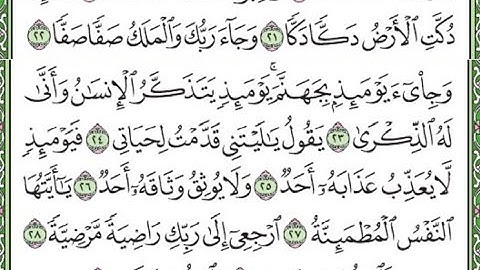 دُكَّتِ ٱلْأَرْضُ دَكًّا دَكًّا ٢١ وَجَآءَ رَبُّكَ وَٱلْمَلَكُ صَفًّا صَفًّا ٢٢
وَجِا۟ىٓءَ يَوْمَئِذٍۭ بِجَهَنَّمَ ۚ يَوْمَئِذٍ يَتَذَكَّرُ ٱلْإِنسَٰنُ وَأَنَّىٰ
لَهُ ٱلذِّكْرَىٰ ٢٣ يَقُولُ يَٰلَيْتَنِى قَدَّمْتُ لِحَيَاتِى ٢٤ فَيَوْمَئِذٍ
لَّا يُعَذِّبُ عَذَابَهُۥٓ أَحَدٌ ٢٥ وَلَا يُوثِقُ وَثَاقَهُۥٓ أَحَدٌ ٢٦ يَٰٓأَيَّتُهَا
ٱلنَّفْسُ ٱلْمُطْمَئِنَّةُ ٢٧ ٱرْجِعِىٓ إِلَىٰ رَبِّكِ رَاضِيَةً مَّرْضِيَّةً ٢٨